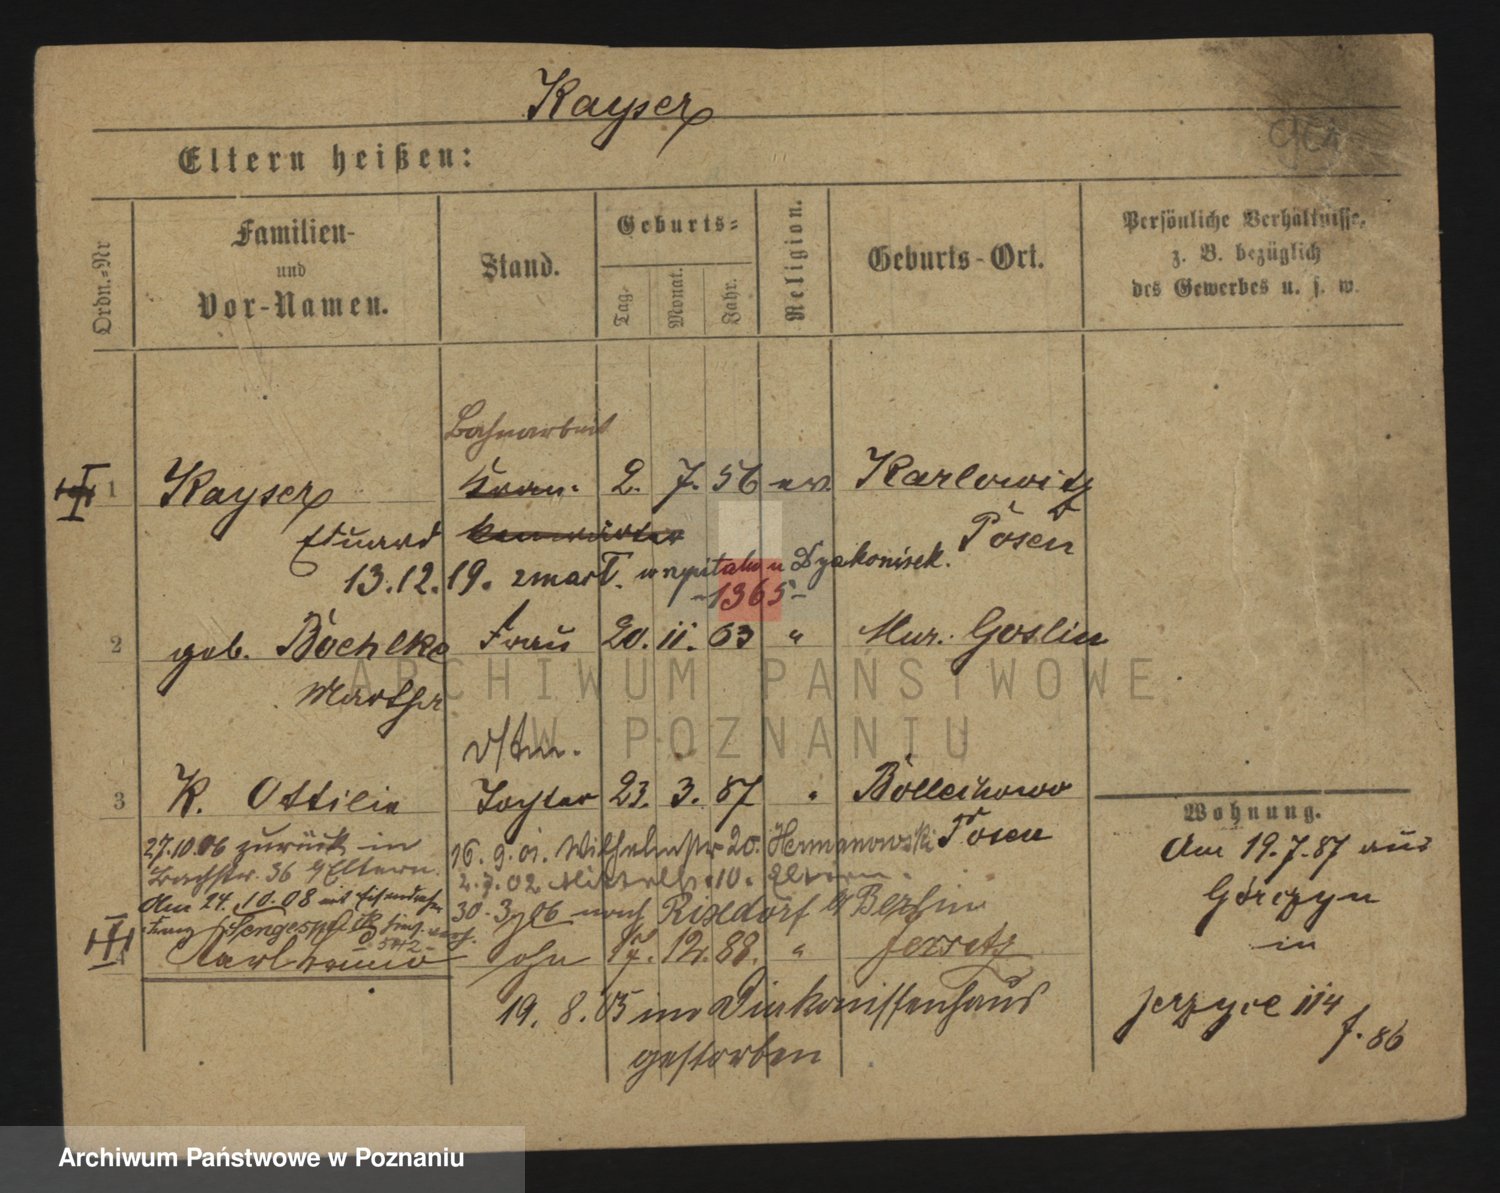 Kayser
Eltern heißen:
Ordn.-Nr
Familien-
und
Vor-Namen.
Stand.
Geburts-
Tag.
Monat.
Jahr.
Religion.
Geburts-Ort.
Persönliche Verhältnisse,
z. B. bezüglich
des Gewerbes u. s. w.
Bahnarbeit
1 Kayser Kran. 2. 7. 56 ev. Karlowitz
Eduard Posen
13.12.19. zmarł. w szpitalu u Dyakonisek.
-1365-
2 geb. Boehlke Frau 20. 11. 63 " Mur. Goslin
Martha
ARCHIWUM PAŃSTWOWE
W POZNANIU
3 K. Ottilie Tochter 23. 3. 87 " Bollechowo
Posen
27.10.06 zurück in
Bachstr. 36 Eltern.
16. 9. 01. Wilhelmstr 20. Hermanowski
2. 7. 02 10. Eltern.
Am 24. 10. 08 mit
Franz
30. 3. 06 nach Rixdorf b Berlin
Karl Bruno Sohn 17. 12. 88. " Jersitz
19. 8. 05 im Diakonissenhaus
gestorben
Wohnung.
Am 19.7.87 aus
Górczyn
in
Jerzyce 114
f. 86
Archiwum Państwowe w Poznaniu